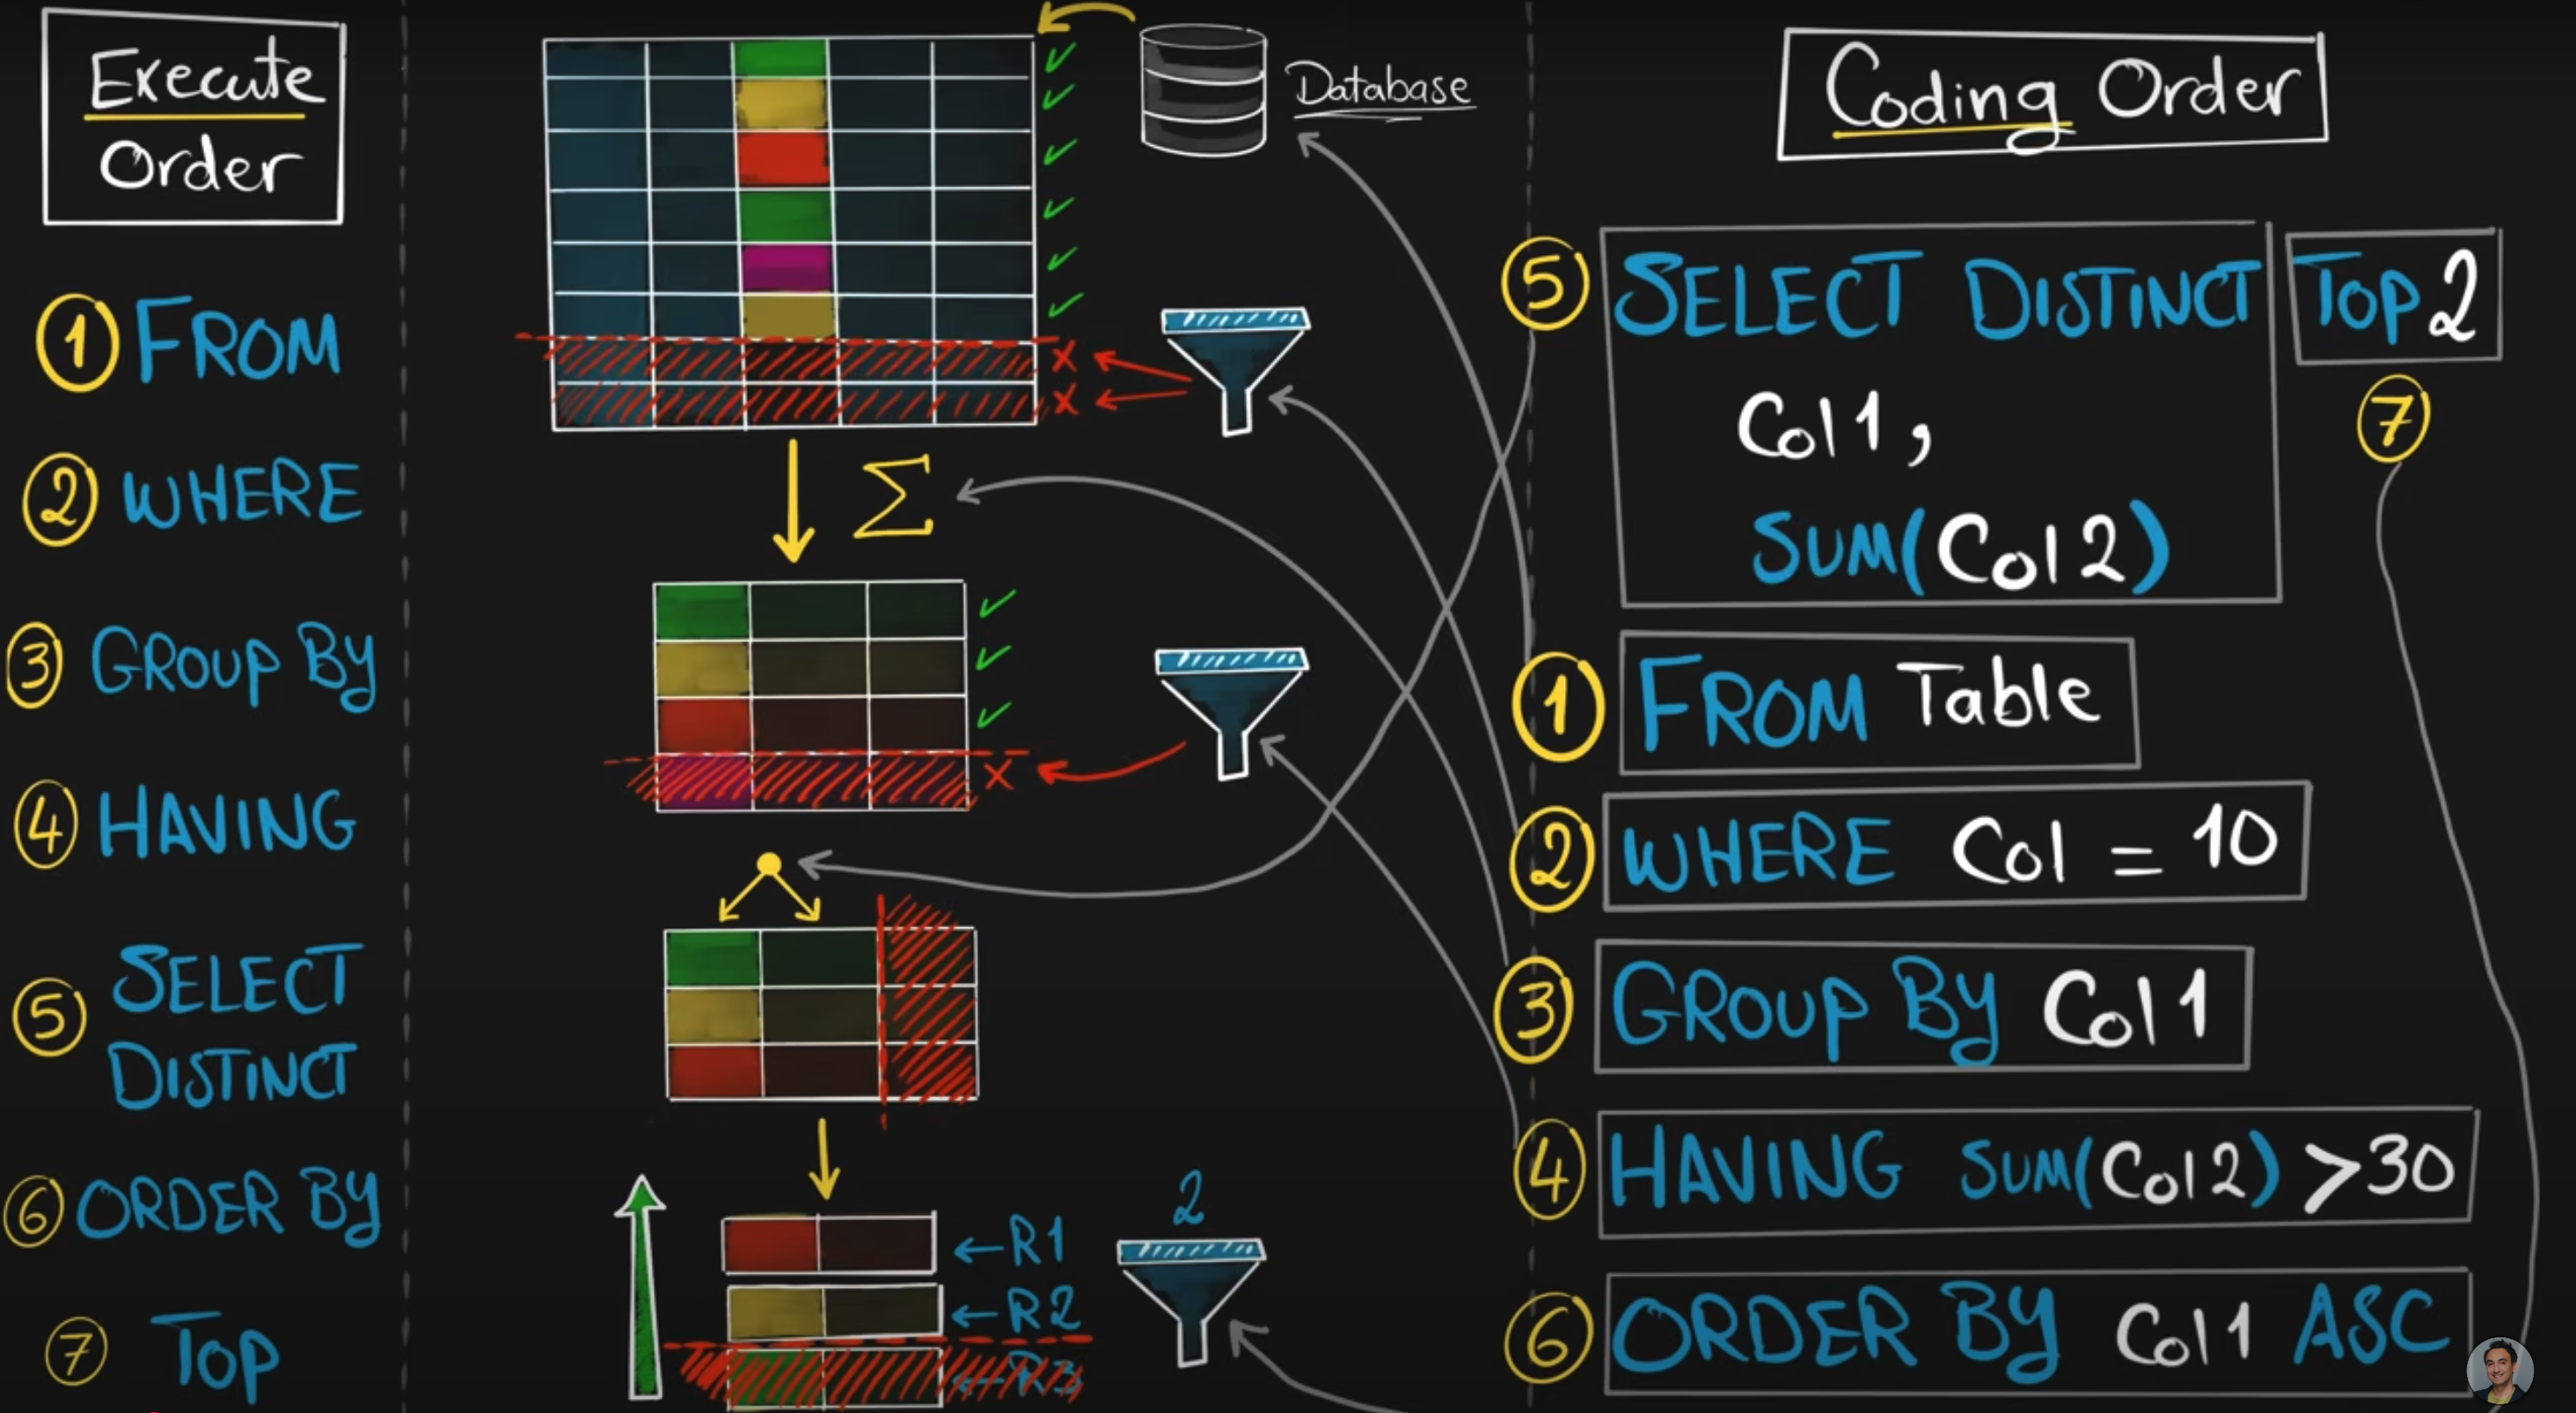 Execute
Order
1 FROM
2 WHERE
3 GROUP BY
4 HAVING
5 SELECT
DISTINCT
6 ORDER BY
7 TOP
Database
Σ
2
←R1
←R2
←R3
Coding Order
5 SELECT DISTINCT TOP 2
Col1,
7
SUM(Col2)
1 FROM Table
2 WHERE Col = 10
3 GROUP BY Col1
4 HAVING SUM(Col2) >30
6 ORDER BY Col1 ASC